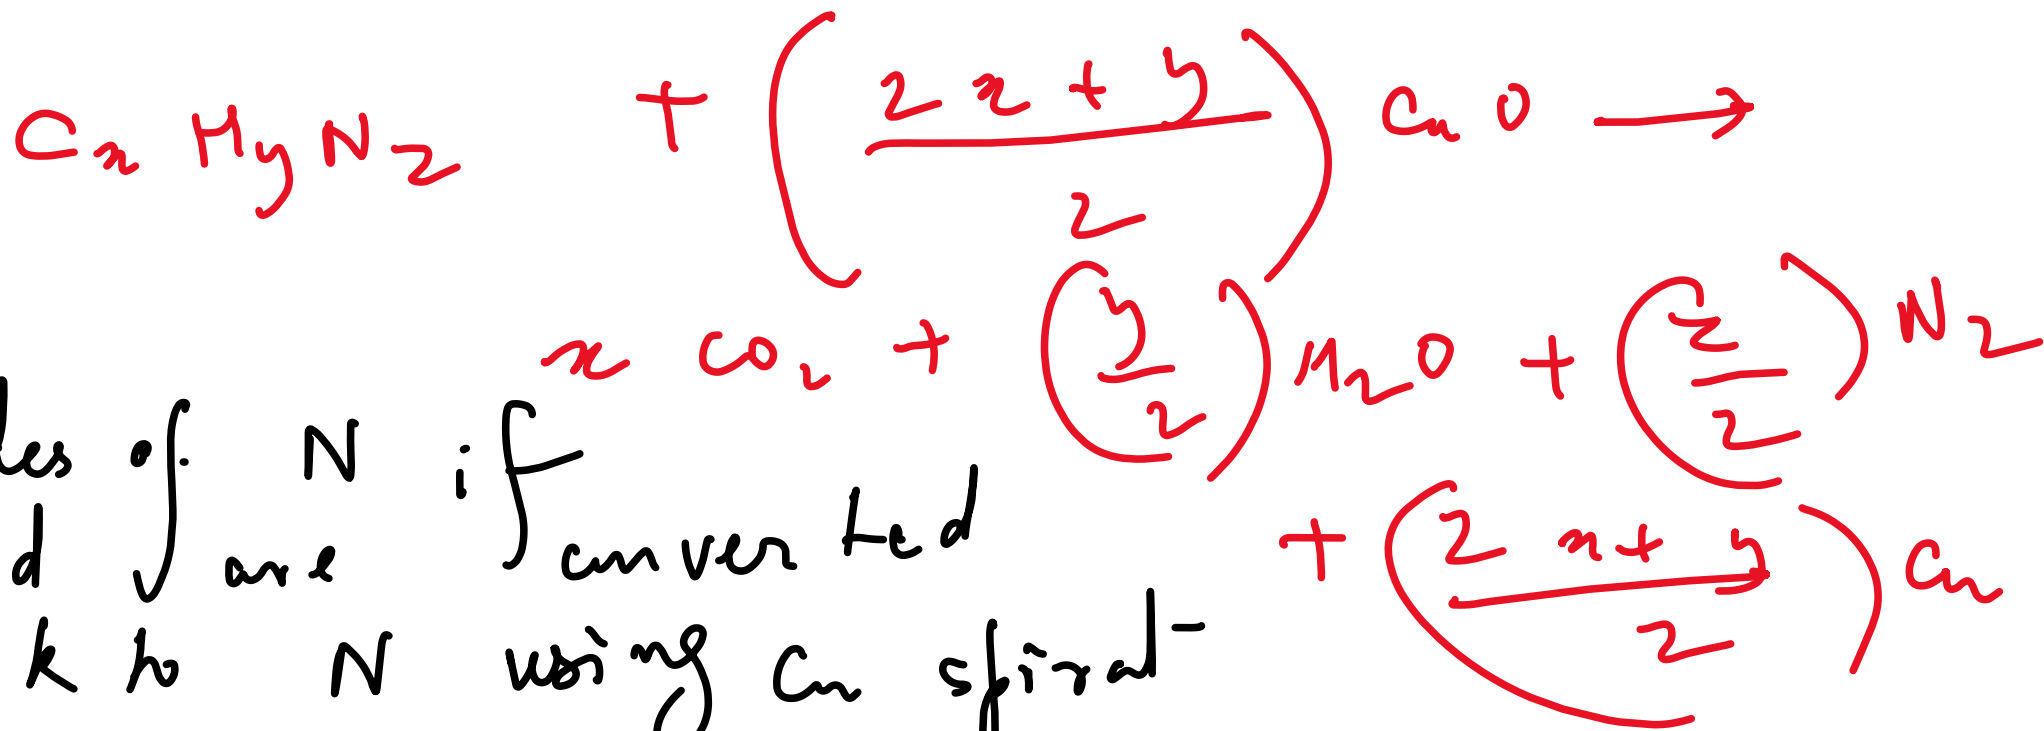 CxHyN2 + (2x + y / 2) CuO →
x CO2 + (y/2) H2O + (z/2) N2
+ (2x + y / 2) Cu
of N if
d are converted
k to N using Cu spiral-